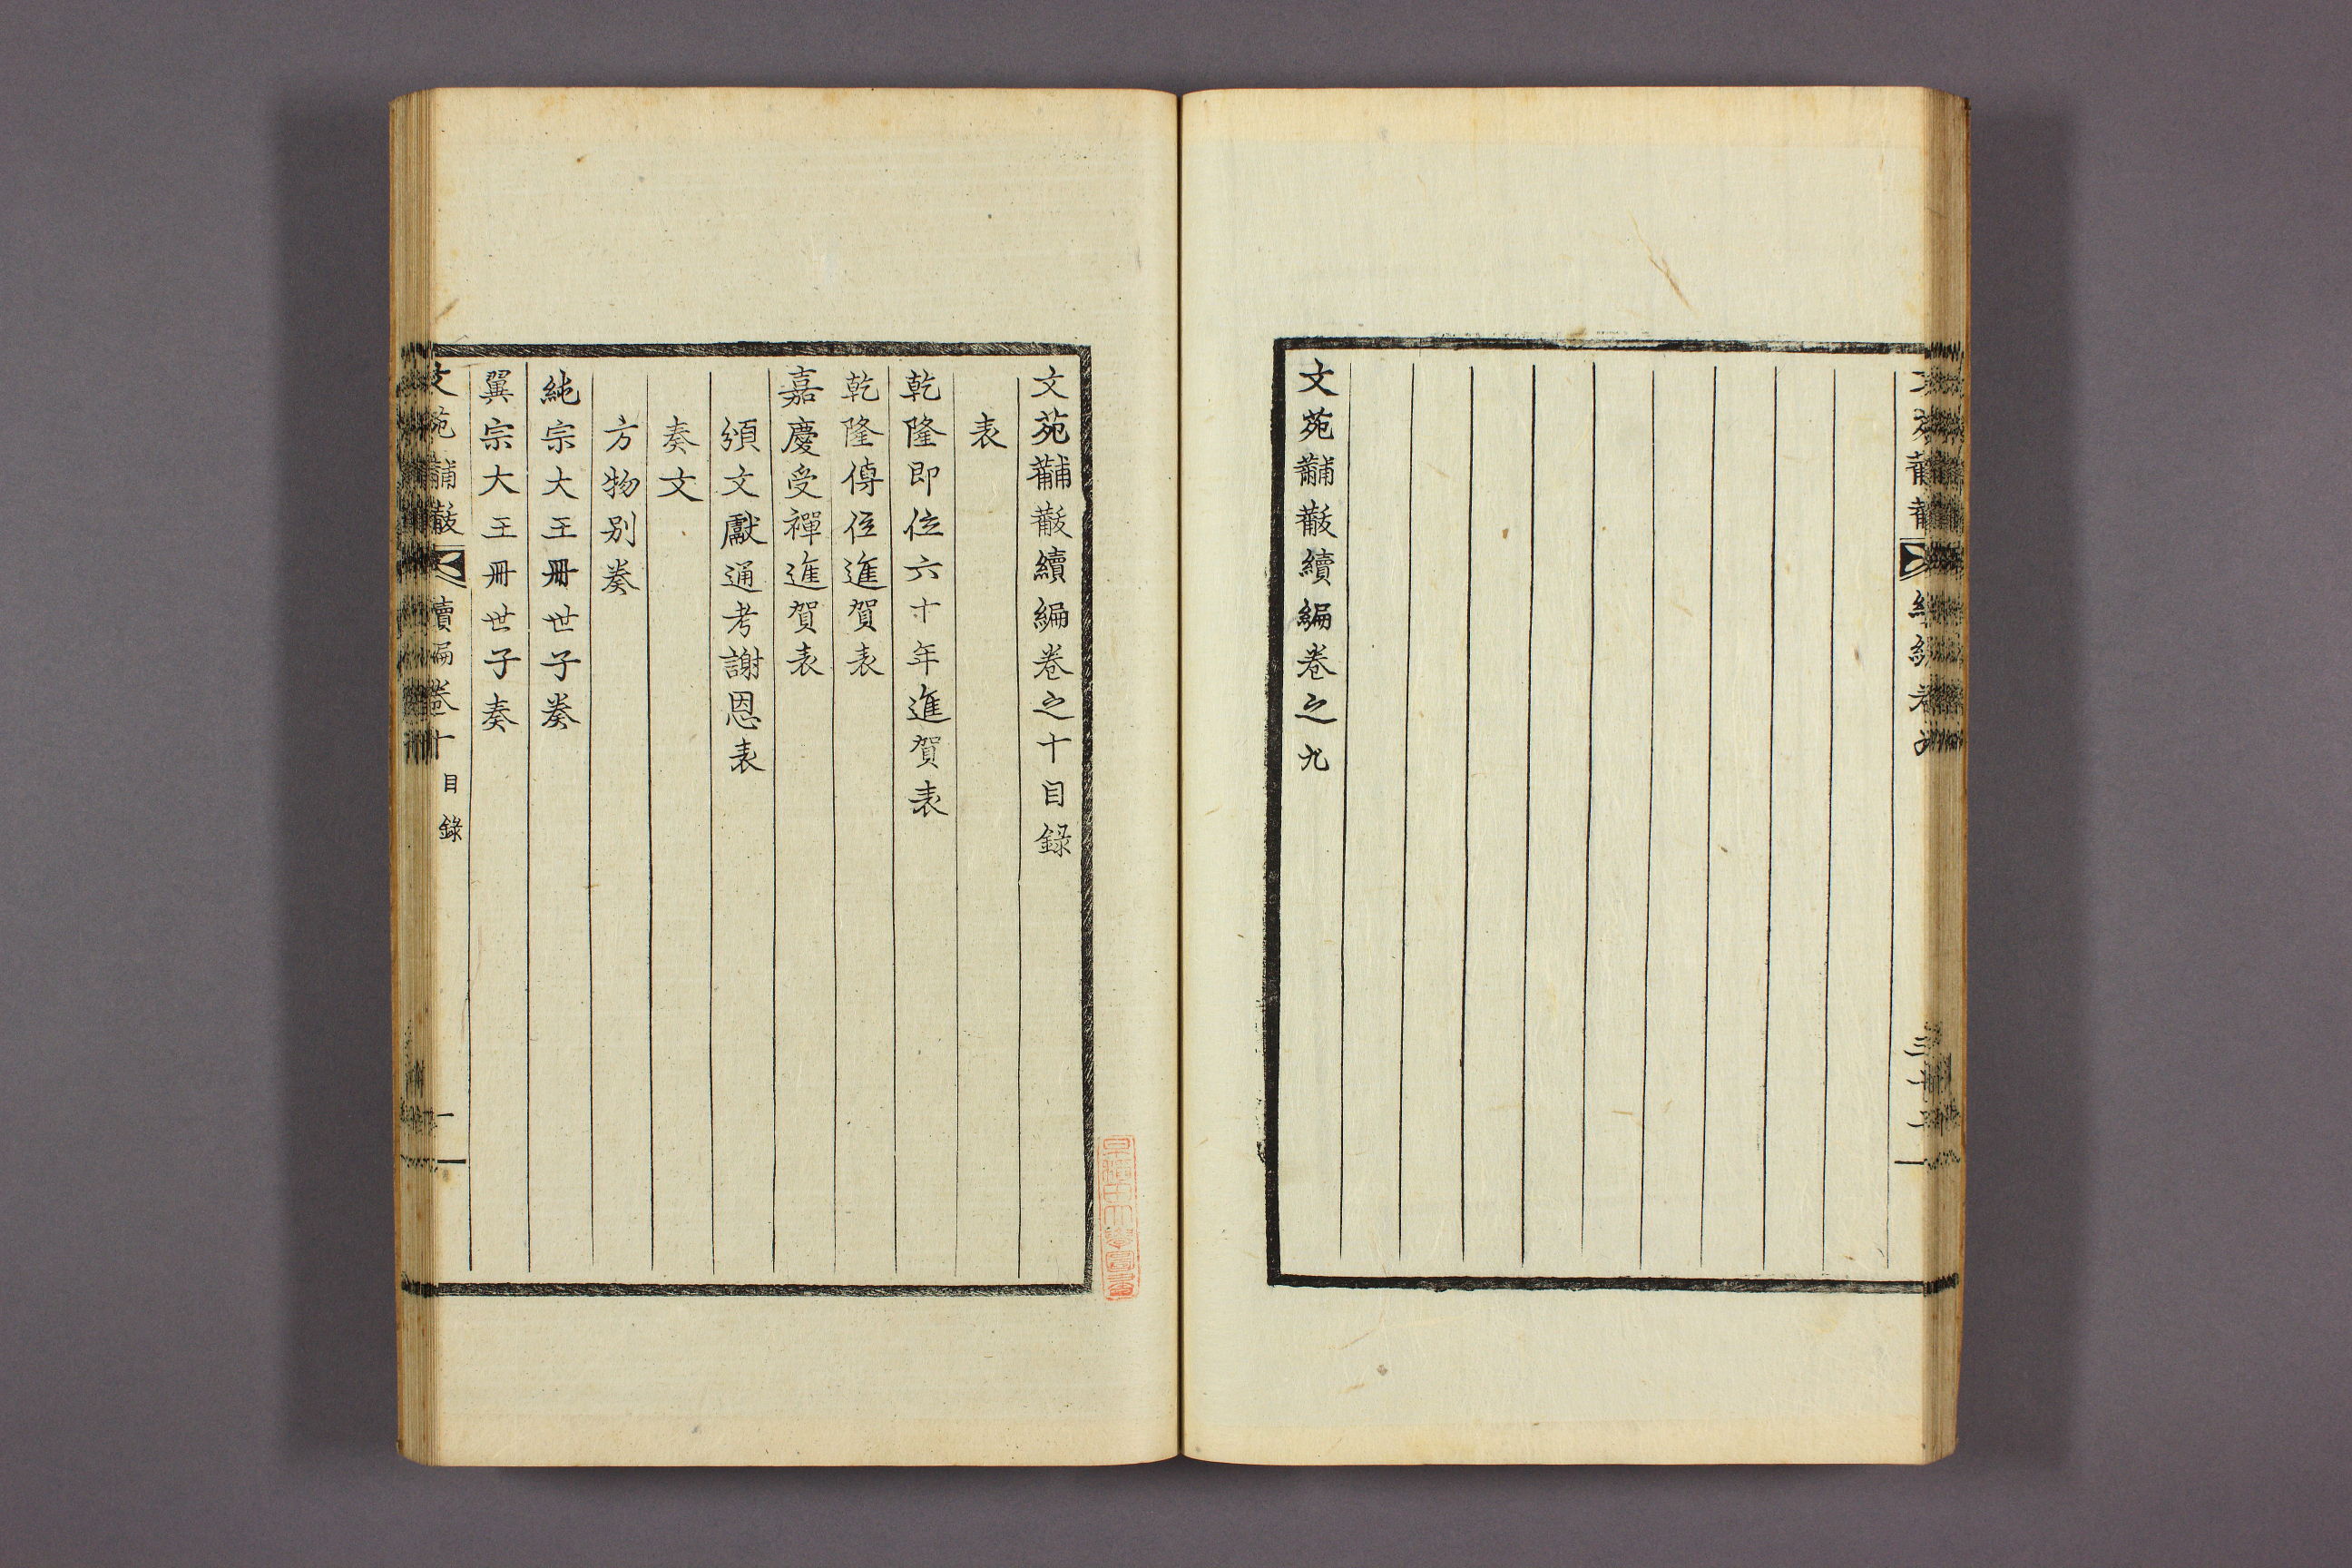 文苑黼黻續編卷之九
文苑黼黻續編卷之十目錄
表
乾隆即位六十年進賀表
乾隆傳位進賀表
嘉慶受禪進賀表
頒文獻通考謝恩表
奏文
方物別奏
純宗大王冊世子奏
翼宗大王冊世子奏
文苑黼黻 續編卷十 目錄 一